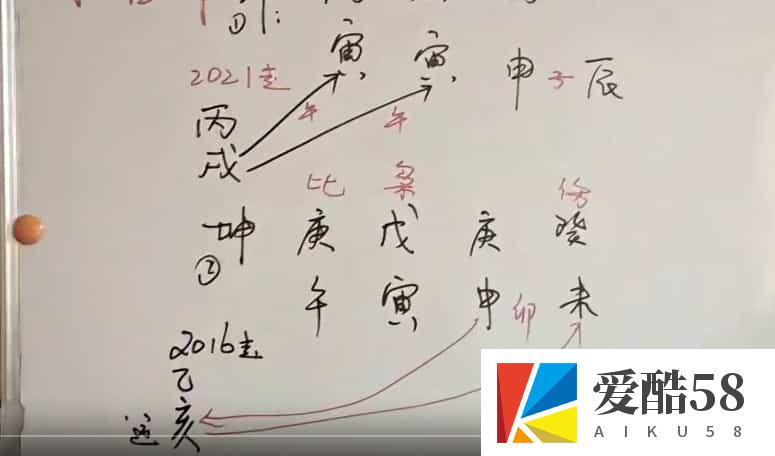 寅 寅 申 子 辰
2021走 午 午
丙
戌
比 枭 伤
坤 庚 戊 庚 癸
②
午 寅 申 卯 未
2016走
乙
运 亥
爱酷58
AIKU58